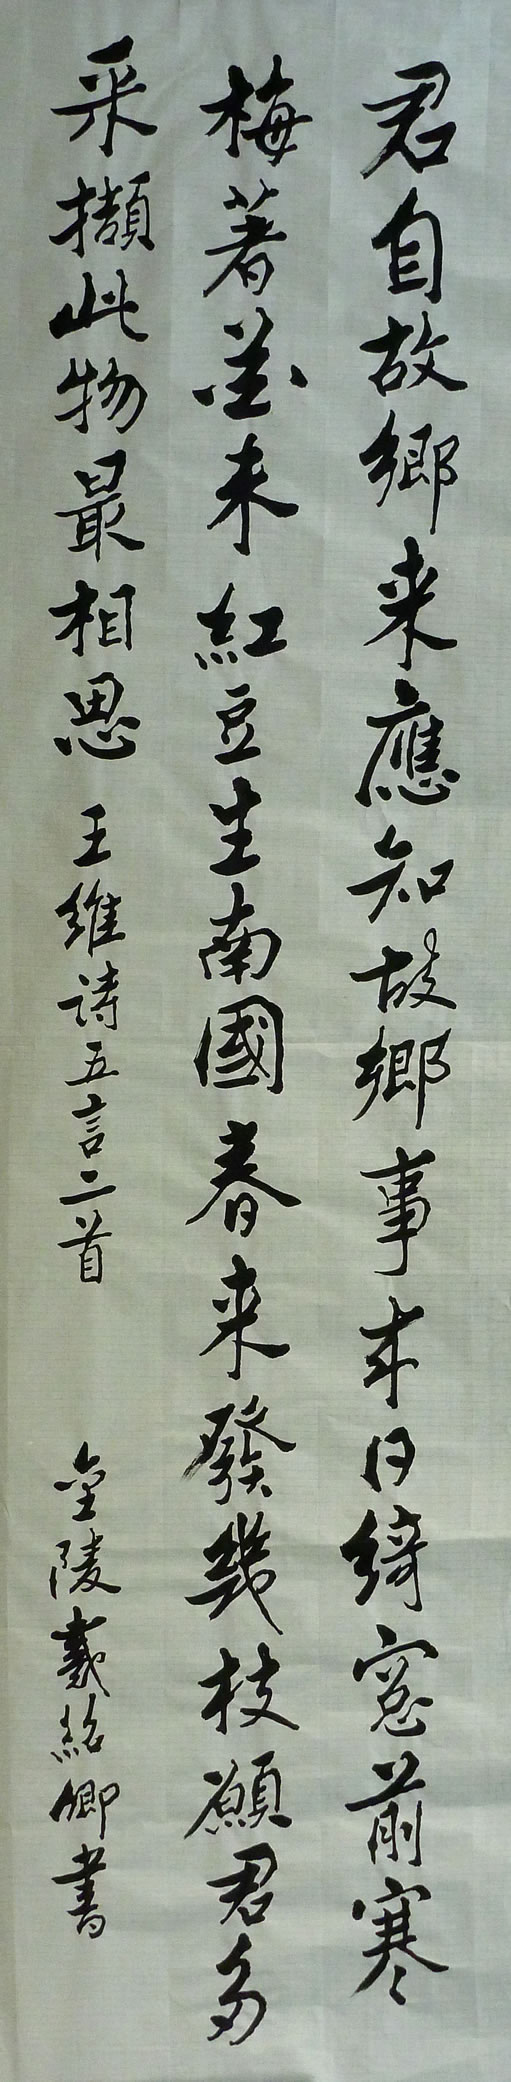 君自故鄉来應知故鄉事来日綺窓前寒
梅著花未紅豆生南國春来發幾枝願君多
采擷此物最相思 王維詩五言二首 金陵戴紹卿書